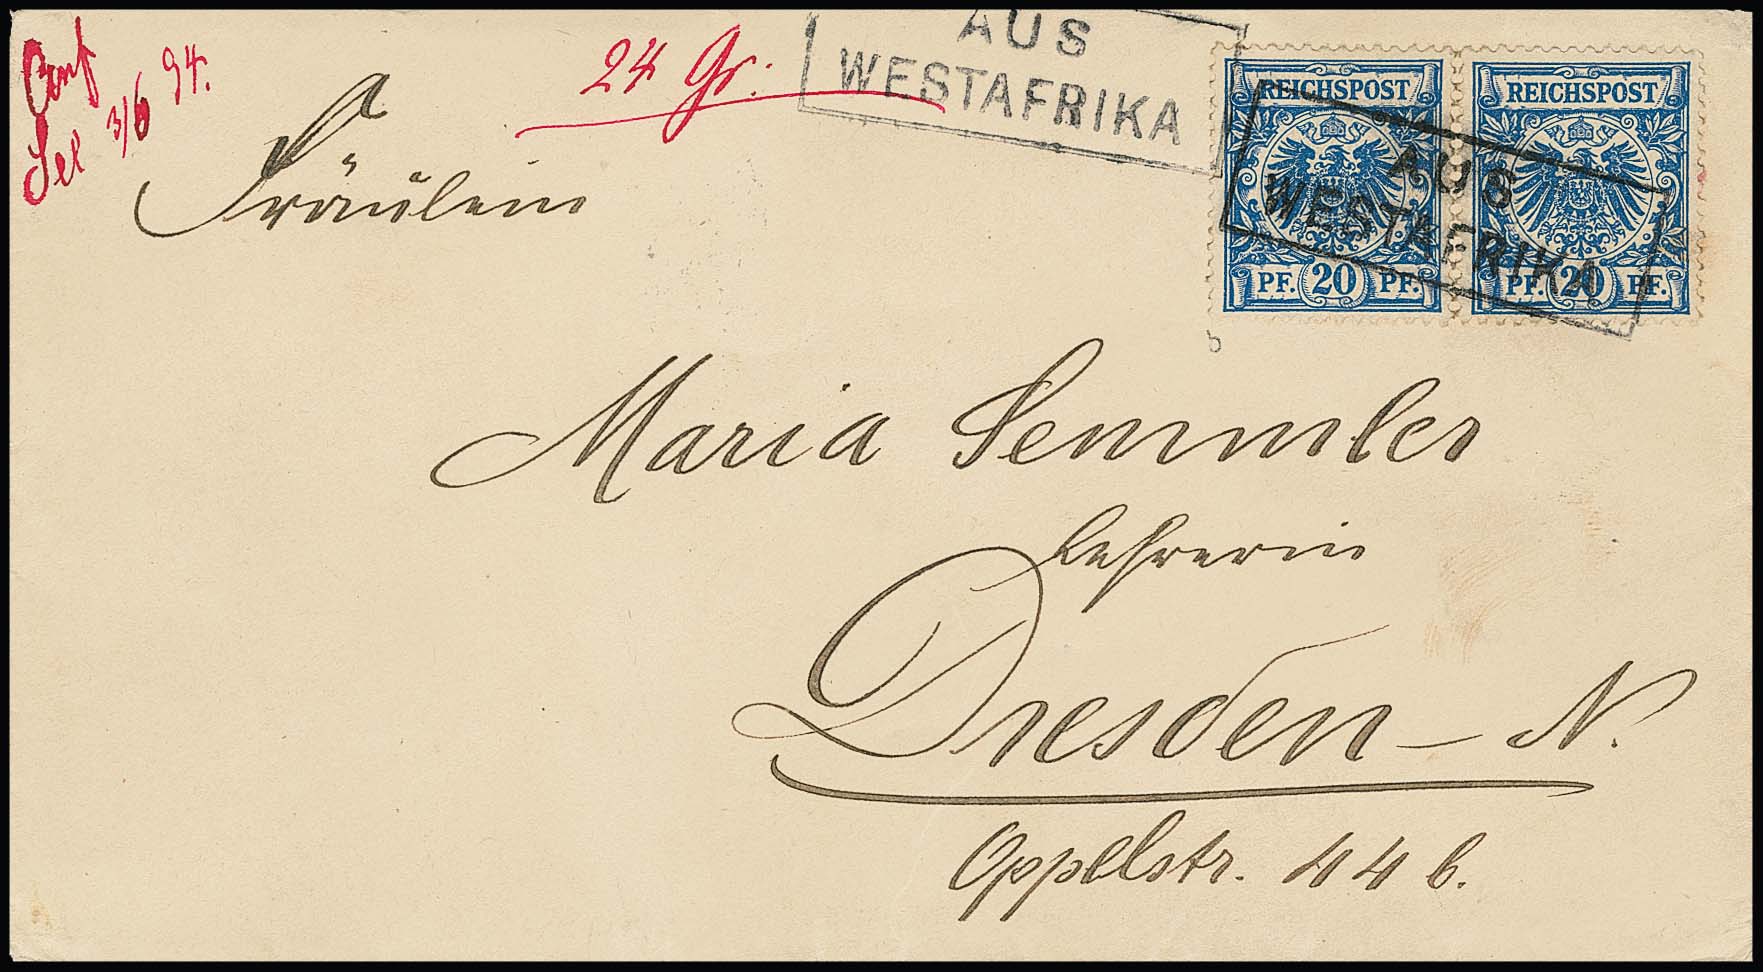 24 Gr.
AUS
WESTAFRIKA
REICHSPOST
PF. 20 PF.
REICHSPOST
PF. 20 PF.
AUS
WESTAFRIKA
3/6 94.
Fräulein
Maria Semmler
Lehrerin
Dresden - N.
Oppelstr. 44 b.